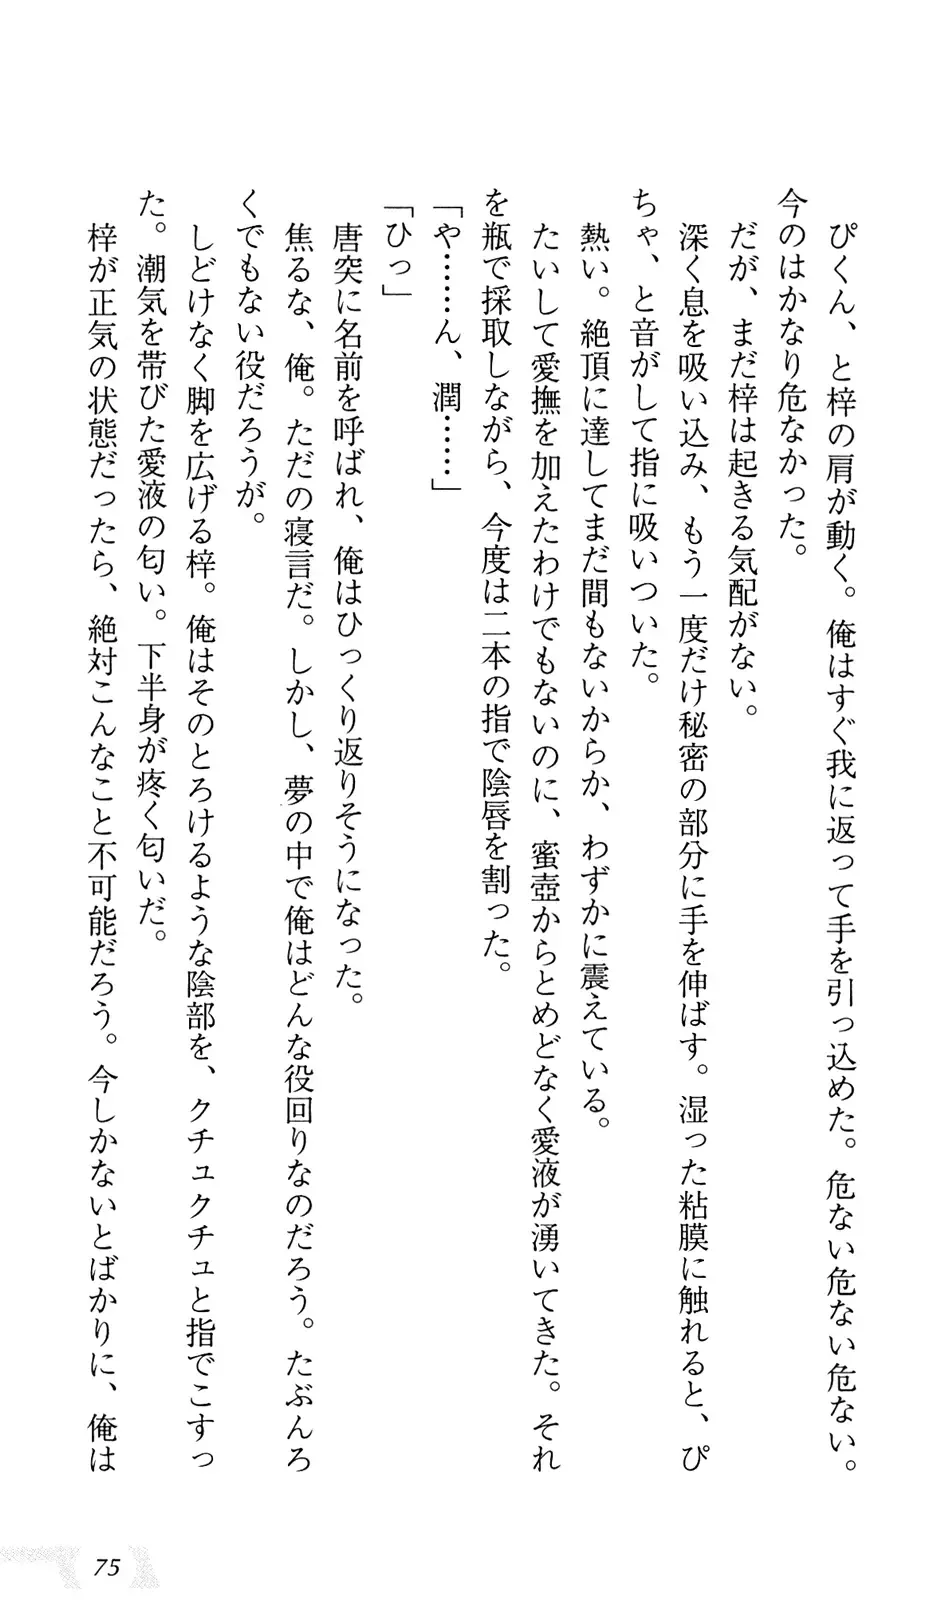 ぴくん、と梓の肩が動く。俺はすぐ我に返って手を引っ込めた。危ない危ない危ない。
今のはかなり危なかった。
だが、まだ梓は起きる気配がない。
深く息を吸い込み、もう一度だけ秘密の部分に手を伸ばす。湿った粘膜に触れると、ぴ
ちゃ、と音がして指に吸いついた。
熱い。絶頂に達してまだ間もないからか、わずかに震えている。
たいして愛撫を加えたわけでもないのに、蜜壺からとめどなく愛液が湧いてきた。それ
を瓶で採取しながら、今度は二本の指で陰唇を割った。
「や……ん、潤……」
「ひっ」
唐突に名前を呼ばれ、俺はひっくり返りそうになった。
焦るな、俺。ただの寝言だ。しかし、夢の中で俺はどんな役回りなのだろう。たぶんろ
くでもない役だろうが。
しどけなく脚を広げる梓。俺はそのとろけるような陰部を、クチュクチュと指でこすっ
た。潮気を帯びた愛液の匂い。下半身が疼く匂いだ。
梓が正気の状態だったら、絶対こんなこと不可能だろう。今しかないとばかりに、俺は
75